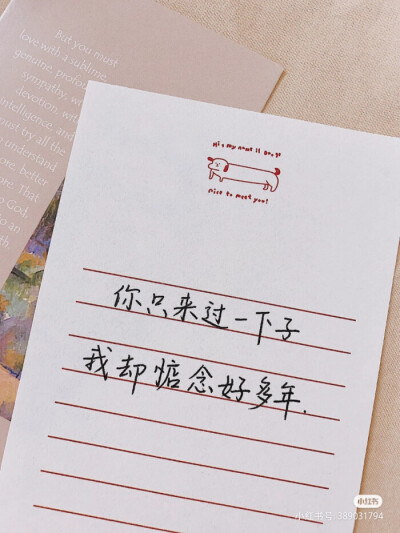 But you must
love with a sublime,
genuine, profound
sympathy, with
devotion, with
intelligence, and
try all the
understand
better
That
God,
to an
Hi, my name is
nice to meet you!
你只来过一下子
我却惦念好多年.
小红书
小红书号:389031794